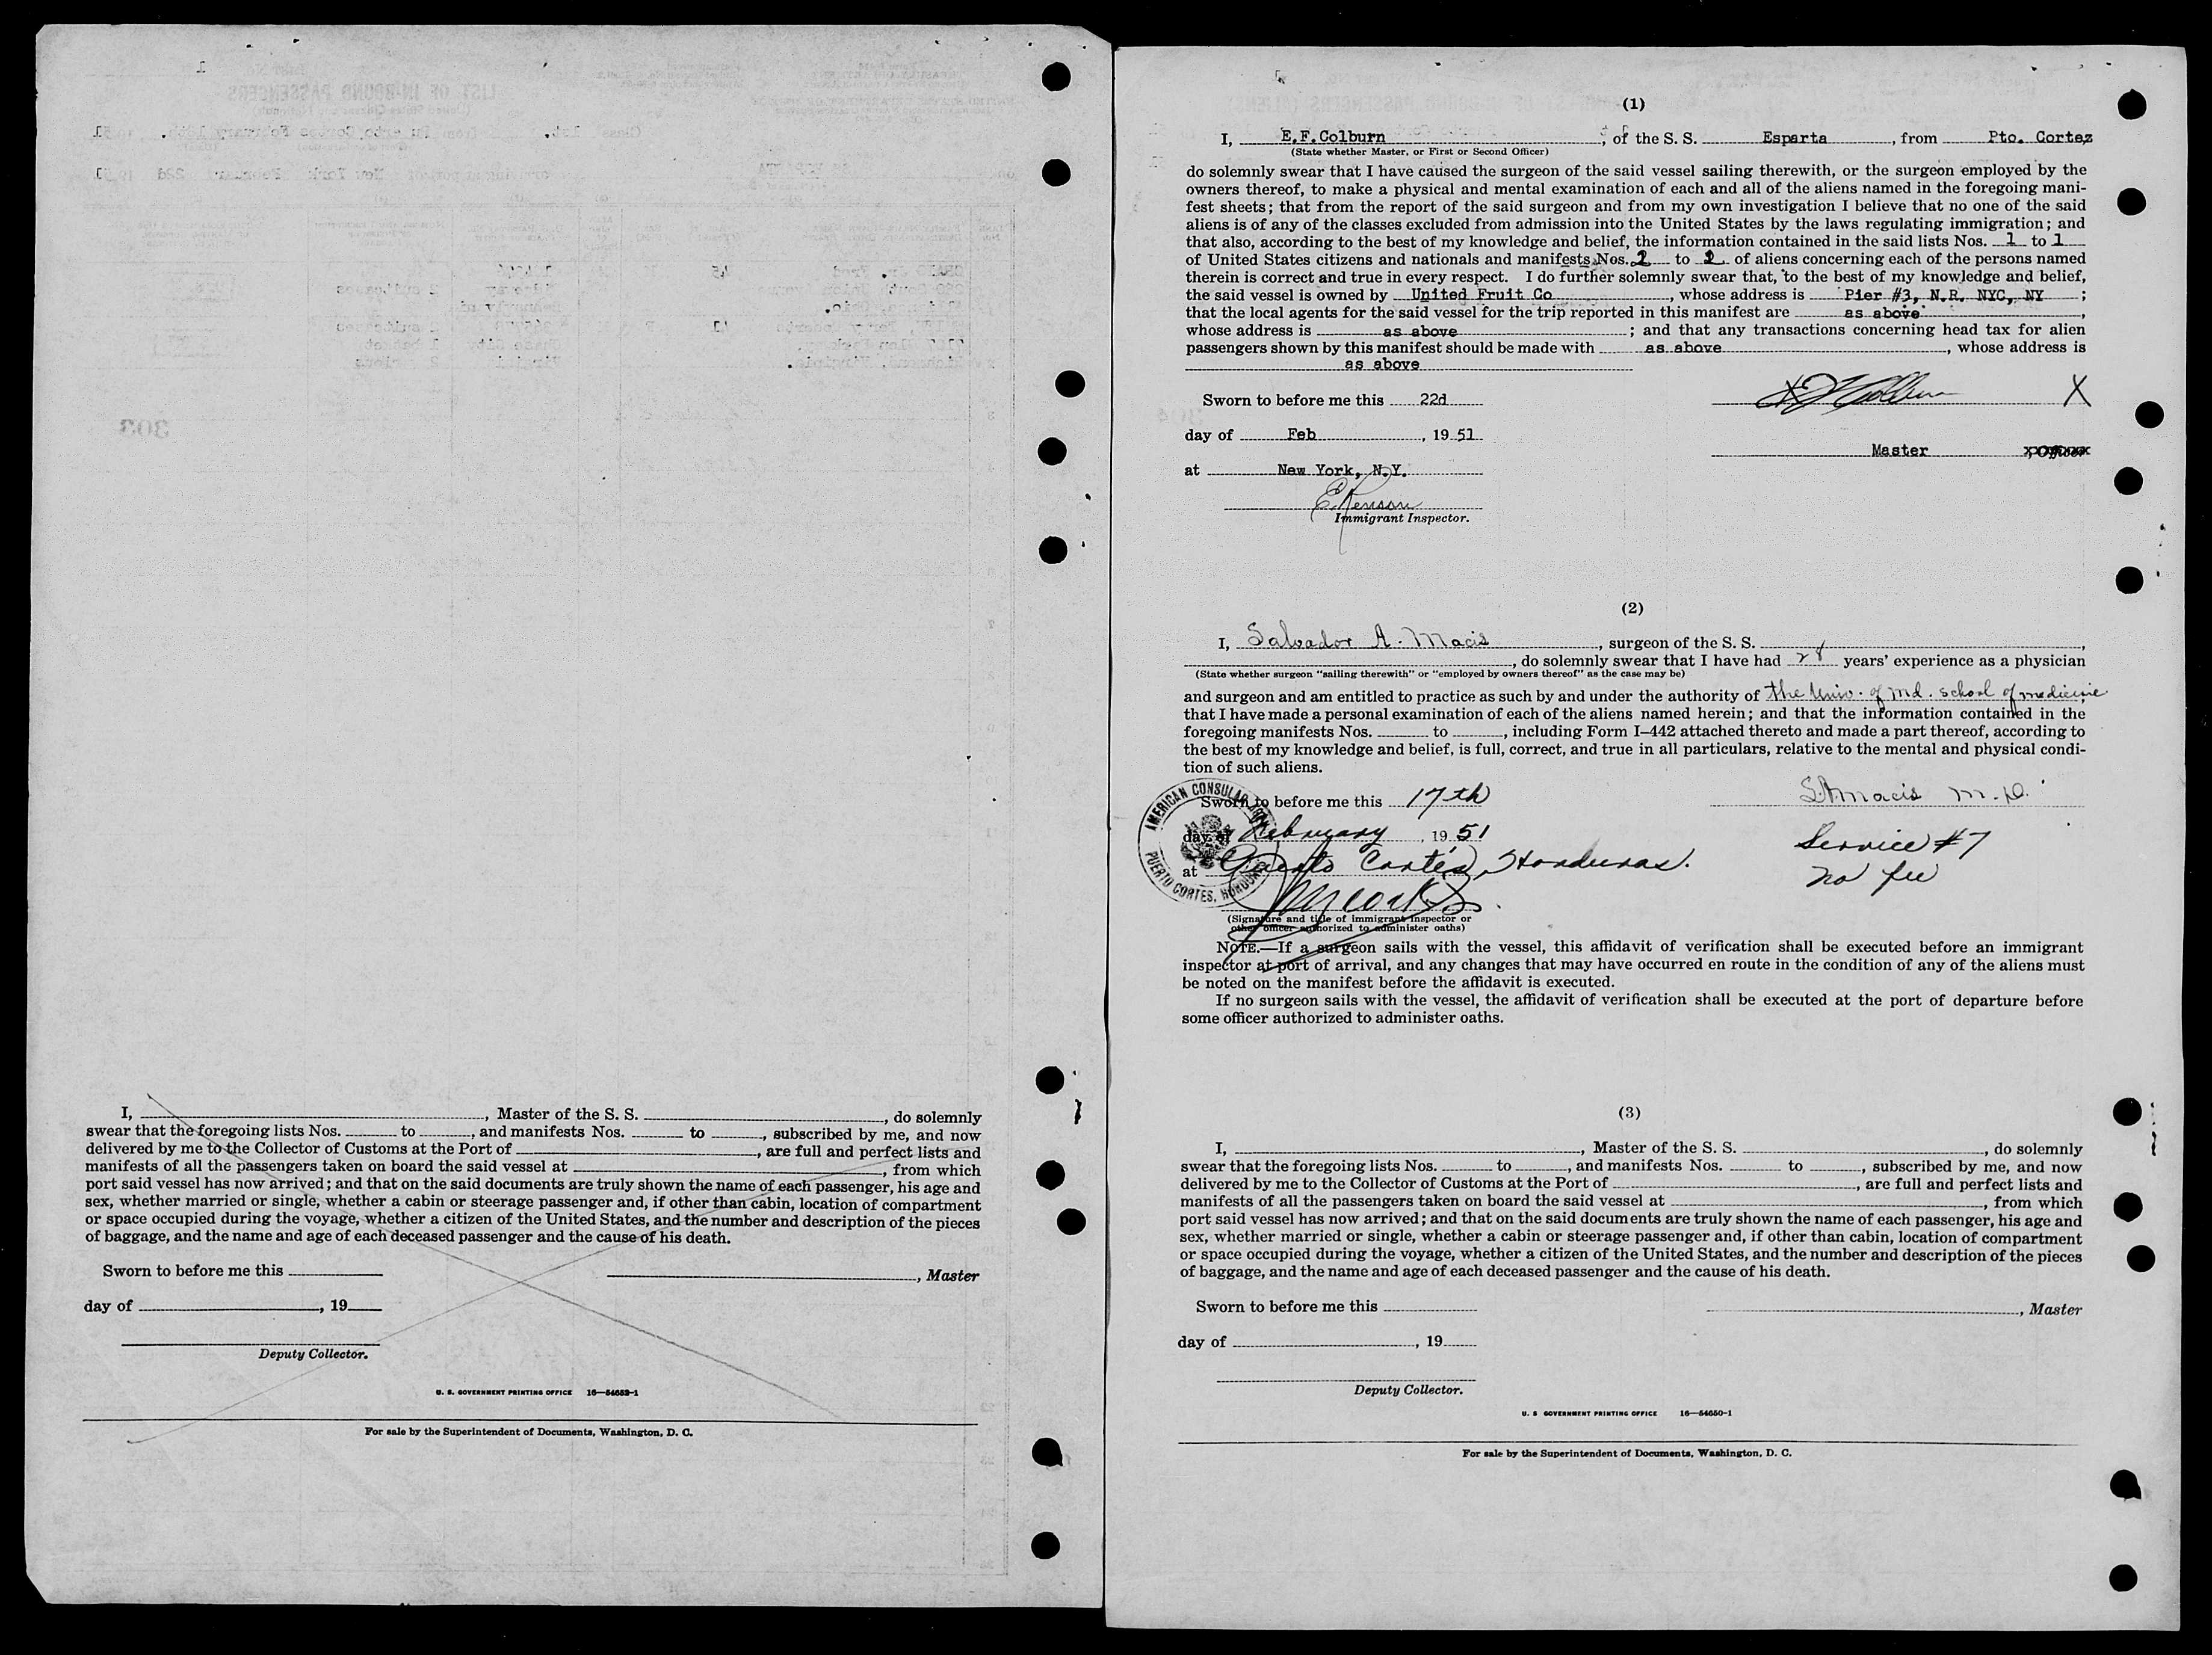 I, ______, Master of the S. S. ______, do solemnly
swear that the foregoing lists Nos. ______ to ______, and manifests Nos. ______ to ______, subscribed by me, and now
delivered by me to the Collector of Customs at the Port of ______, are full and perfect lists and
manifests of all the passengers taken on board the said vessel at ______, from which
port said vessel has now arrived; and that on the said documents are truly shown the name of each passenger, his age and
sex, whether married or single, whether a cabin or steerage passenger and, if other than cabin, location of compartment
or space occupied during the voyage, whether a citizen of the United States, and the number and description of the pieces
of baggage, and the name and age of each deceased passenger and the cause of his death.
Sworn to before me this ______
______, Master
day of ______, 19____
Deputy Collector.
U. S. GOVERNMENT PRINTING OFFICE 16—54652-1
For sale by the Superintendent of Documents, Washington, D. C.
(1)
I, E.F.Colburn, of the S. S. Esparta, from Pto. Cortez
(State whether Master, or First or Second Officer)
do solemnly swear that I have caused the surgeon of the said vessel sailing therewith, or the surgeon employed by the
owners thereof, to make a physical and mental examination of each and all of the aliens named in the foregoing mani-
fest sheets; that from the report of the said surgeon and from my own investigation I believe that no one of the said
aliens is of any of the classes excluded from admission into the United States by the laws regulating immigration; and
that also, according to the best of my knowledge and belief, the information contained in the said lists Nos. 1 to 1
of United States citizens and nationals and manifests Nos. 2 to 2 of aliens concerning each of the persons named
therein is correct and true in every respect. I do further solemnly swear that, to the best of my knowledge and belief,
the said vessel is owned by United Fruit Co, whose address is Pier #3, N.R. NYC, NY;
that the local agents for the said vessel for the trip reported in this manifest are as above,
whose address is as above; and that any transactions concerning head tax for alien
passengers shown by this manifest should be made with as above, whose address is
as above
Sworn to before me this 22d
X
day of Feb, 19 51
Master
at New York, N.Y.
Immigrant Inspector.
(2)
I, Salvador A. Macis, surgeon of the S. S. ______,
______, do solemnly swear that I have had 28 years' experience as a physician
(State whether surgeon "sailing therewith" or "employed by owners thereof" as the case may be)
and surgeon and am entitled to practice as such by and under the authority of the Univ. of Md. school of medicine
that I have made a personal examination of each of the aliens named herein; and that the information contained in the
foregoing manifests Nos. ______ to ______, including Form I–442 attached thereto and made a part thereof, according to
the best of my knowledge and belief, is full, correct, and true in all particulars, relative to the mental and physical condi-
tion of such aliens.
AMERICAN CONSULAR
PUERTO CORTES, HONDURAS
Sworn to before me this 17th
S.A. Macis M.D.
day of February, 19 51
Service #7
at Puerto Cortés, Honduras.
no fee
(Signature and title of immigrant inspector or
other officer authorized to administer oaths)
NOTE.—If a surgeon sails with the vessel, this affidavit of verification shall be executed before an immigrant
inspector at port of arrival, and any changes that may have occurred en route in the condition of any of the aliens must
be noted on the manifest before the affidavit is executed.
If no surgeon sails with the vessel, the affidavit of verification shall be executed at the port of departure before
some officer authorized to administer oaths.
(3)
I, ______, Master of the S. S. ______, do solemnly
swear that the foregoing lists Nos. ______ to ______, and manifests Nos. ______ to ______, subscribed by me, and now
delivered by me to the Collector of Customs at the Port of ______, are full and perfect lists and
manifests of all the passengers taken on board the said vessel at ______, from which
port said vessel has now arrived; and that on the said documents are truly shown the name of each passenger, his age and
sex, whether married or single, whether a cabin or steerage passenger and, if other than cabin, location of compartment
or space occupied during the voyage, whether a citizen of the United States, and the number and description of the pieces
of baggage, and the name and age of each deceased passenger and the cause of his death.
Sworn to before me this ______
______, Master
day of ______, 19____
Deputy Collector.
U. S GOVERNMENT PRINTING OFFICE 16—54650-1
For sale by the Superintendent of Documents, Washington, D. C.